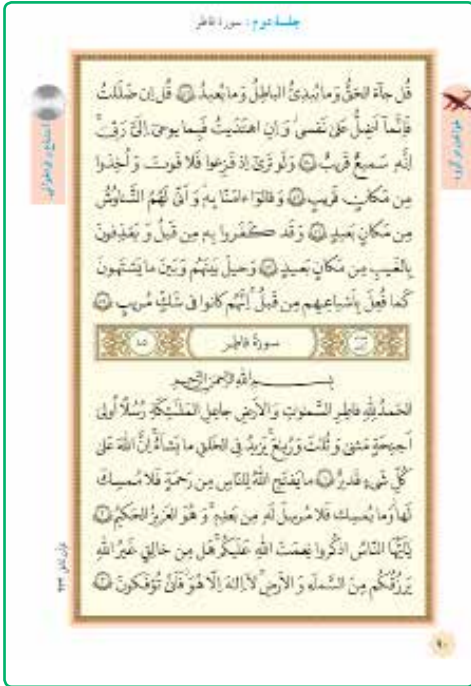 جلسهٔ دوم : سورهٔ فاطر
قُل جآءَ الحَقُّ وَ ما يُبدِئُ الباطِلُ وَ ما يُعيدُ ۴۹ قُل اِن ضَلَلتُ
فَاِنَّمآ اَضِلُّ عَلىٰ نَفسى وَ اِنِ اهتَدَيتُ فَبِما يوحى اِلَىَّ رَبّى
اِنَّهٗ سَميعٌ قَريبٌ ۵۰ وَ لَو تَرىٰٓ اِذ فَزِعوا فَلا فَوتَ وَ اُخِذوا
مِن مَكانٍ قَريبٍ ۵۱ وَ قالوٓا ءامَنّا بِهٖ وَ اَنّىٰ لَهُمُ التَّناوُشُ
مِن مَكانٍ بَعيدٍ ۵۲ وَ قَد كَفَروا بِهٖ مِن قَبلُ وَ يَقذِفونَ
بِالغَيبِ مِن مَكانٍ بَعيدٍ ۵۳ وَ حيلَ بَينَهُم وَ بَينَ ما يَشتَهونَ
كَما فُعِلَ بِاَشياعِهِم مِن قَبلُ اِنَّهُم كانوا فى شَكٍّ مُريبٍ ۵۴
سورَةُ فاطِر
بِسمِ اللهِ الرَّحمٰنِ الرَّحيمِ
اَلحَمدُ لِلّٰهِ فاطِرِ السَّمٰوٰتِ وَ الاَرضِ جاعِلِ المَلٰٓئِكَةِ رُسُلًا اُولىٓ
اَجنِحَةٍ مَثنىٰ وَ ثُلٰثَ وَ رُبٰعَ يَزيدُ فِى الخَلقِ ما يَشآءُ اِنَّ اللهَ عَلىٰ
كُلِّ شَىءٍ قَديرٌ ۱ ما يَفتَحِ اللهُ لِلنّاسِ مِن رَحمَةٍ فَلا مُمسِكَ
لَها وَ ما يُمسِك فَلا مُرسِلَ لَهٗ مِن بَعدِهٖ وَ هُوَ العَزيزُ الحَكيمُ ۲
يٰٓاَيُّهَا النّاسُ اذكُروا نِعمَتَ اللهِ عَلَيكُم هَل مِن خالِقٍ غَيرُ اللهِ
يَرزُقُكُم مِنَ السَّمآءِ وَ الاَرضِ لآ اِلٰهَ اِلّا هُوَ فَاَنّىٰ تُؤفَكونَ ۳
۹۰